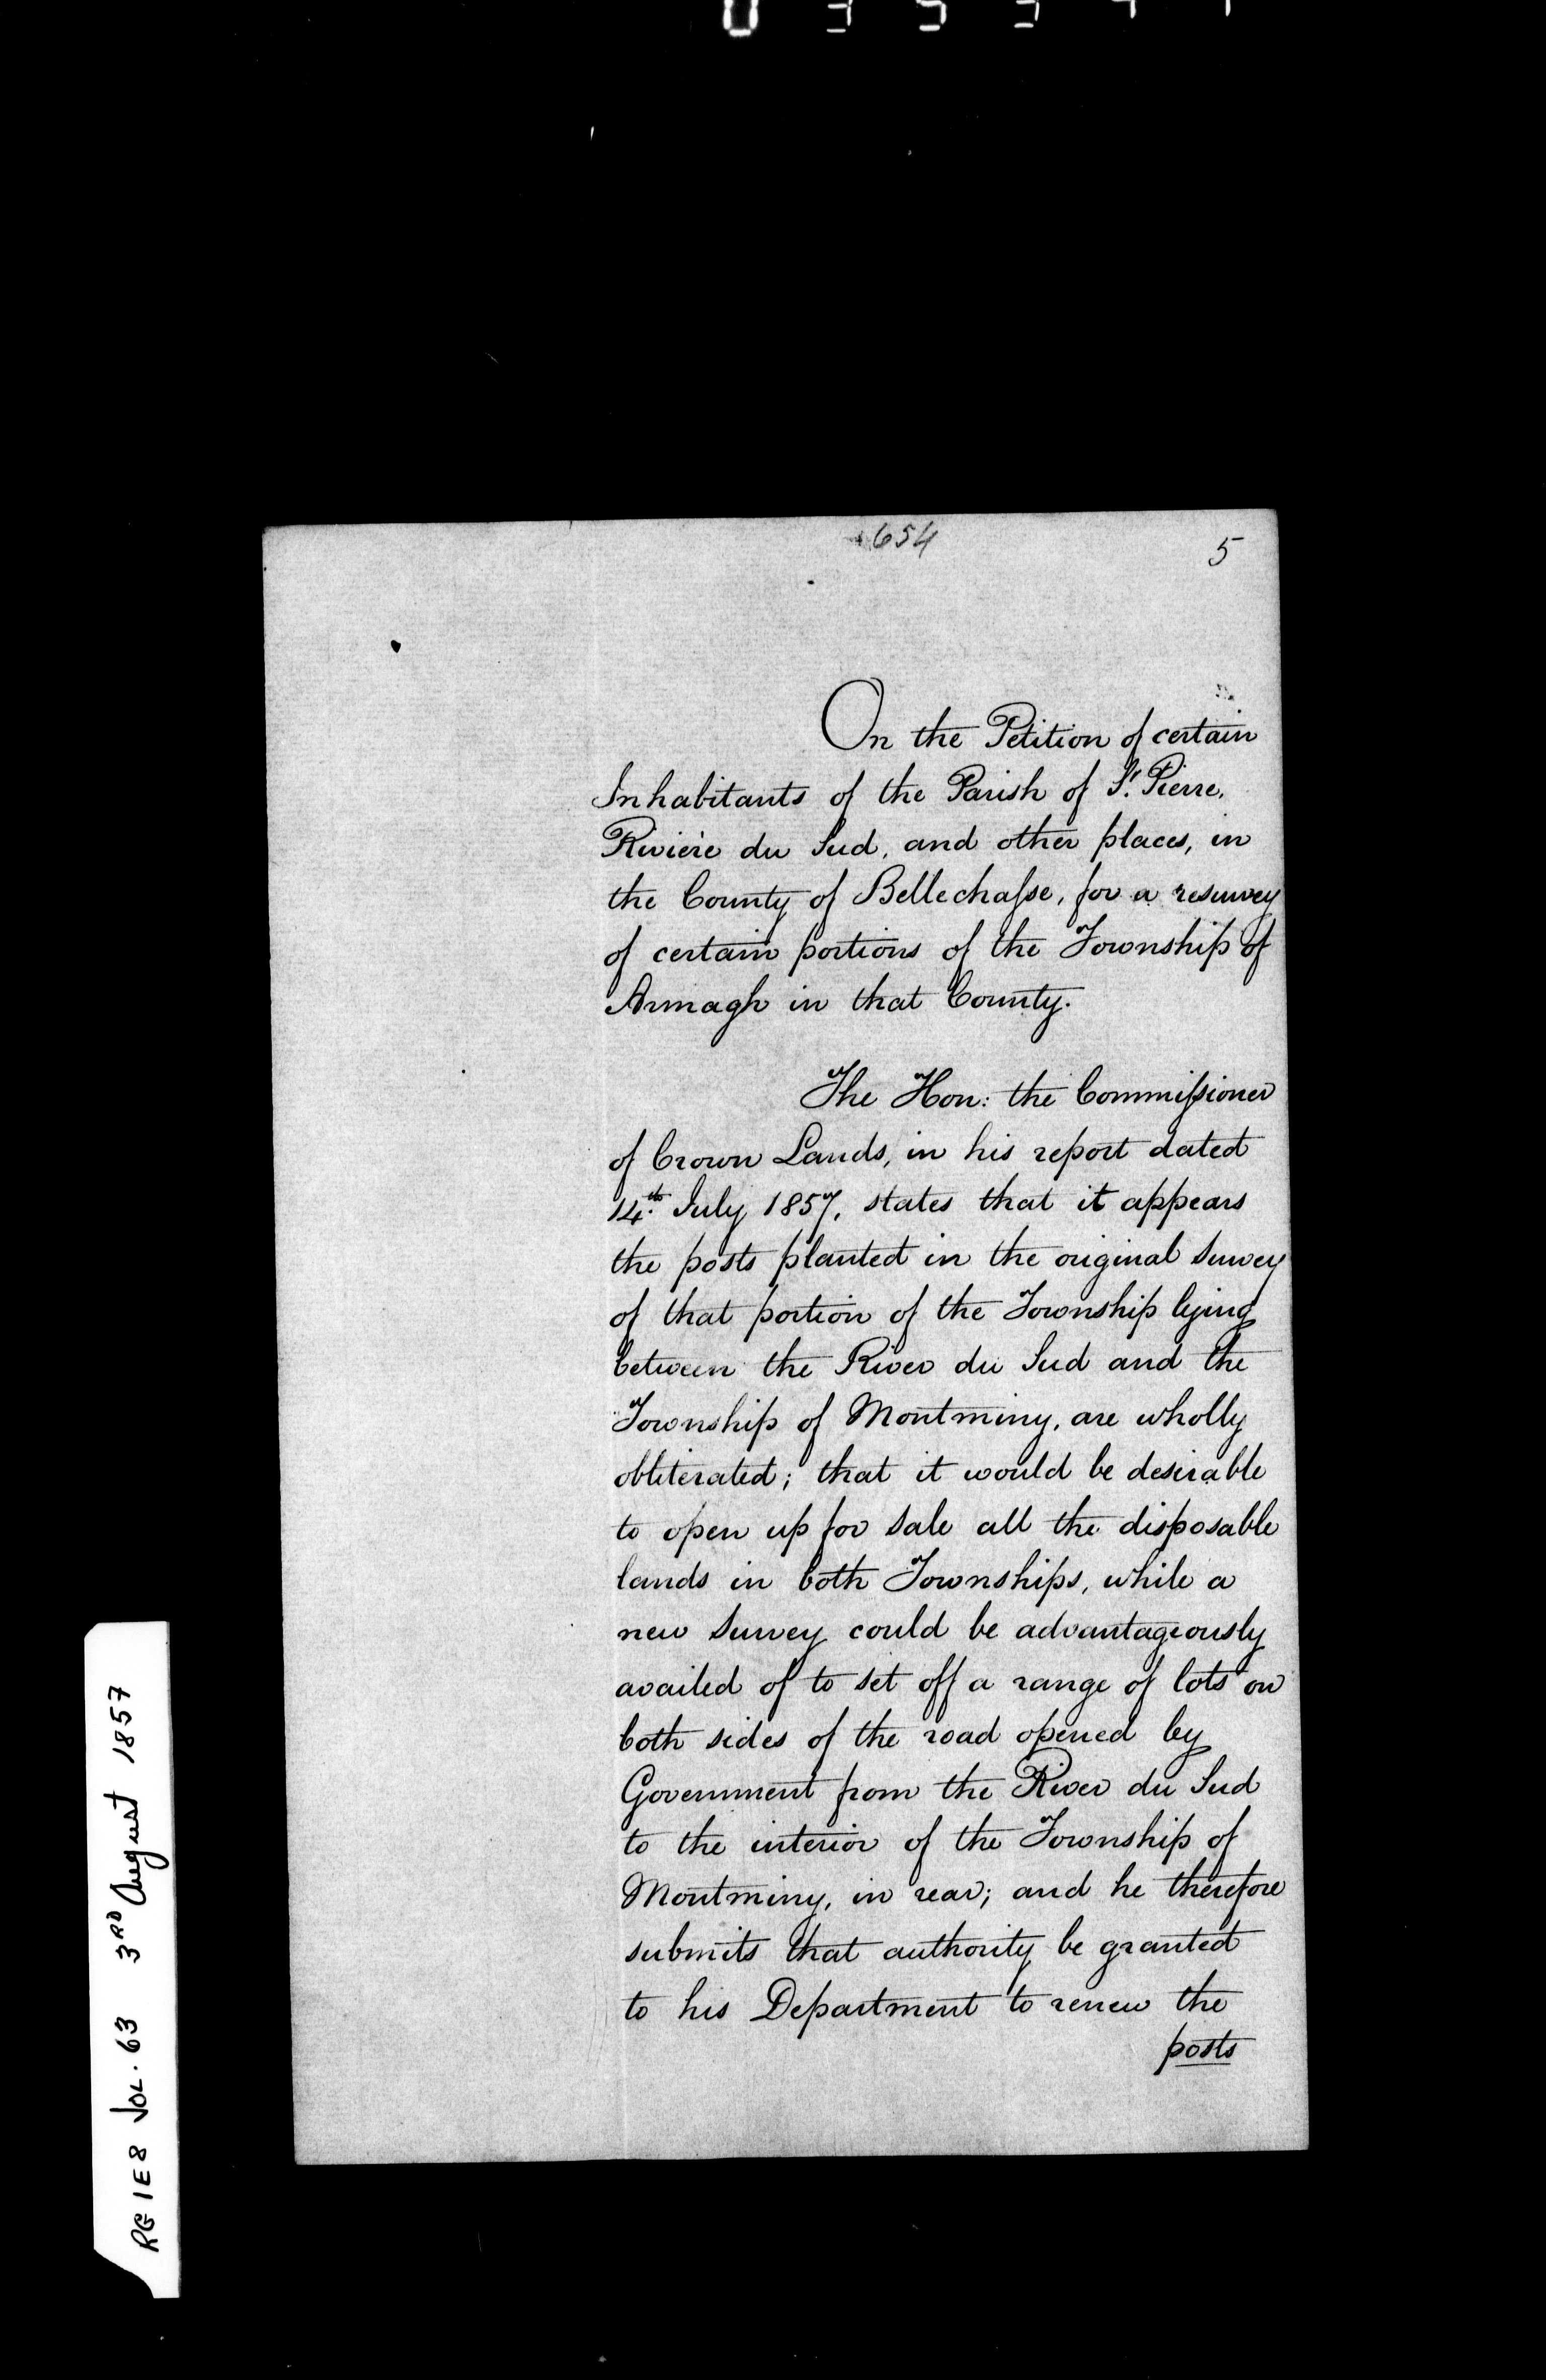 654
5
On the Petition of certain
Inhabitants of the Parish of St. Pierre,
Rivière du Sud, and other places, in
the County of Bellechasse, for a resurvey
of certain portions of the Township of
Armagh in that County.
The Hon: the Commissioner
of Crown Lands, in his report dated
14th July 1857, states that it appears
the posts planted in the original Survey
of that portion of the Township lying
between the River du Sud and the
Township of Montminy, are wholly
obliterated; that it would be desirable
to open up for Sale all the disposable
lands in both Townships, while a
new Survey could be advantageously
availed of to set off a range of lots on
both sides of the road opened by
Government from the River du Sud
to the interior of the Township of
Montminy, in rear; and he therefore
submits that authority be granted
to his Department to renew the
posts
RG 1 E8 VOL. 63 3RD August 1857